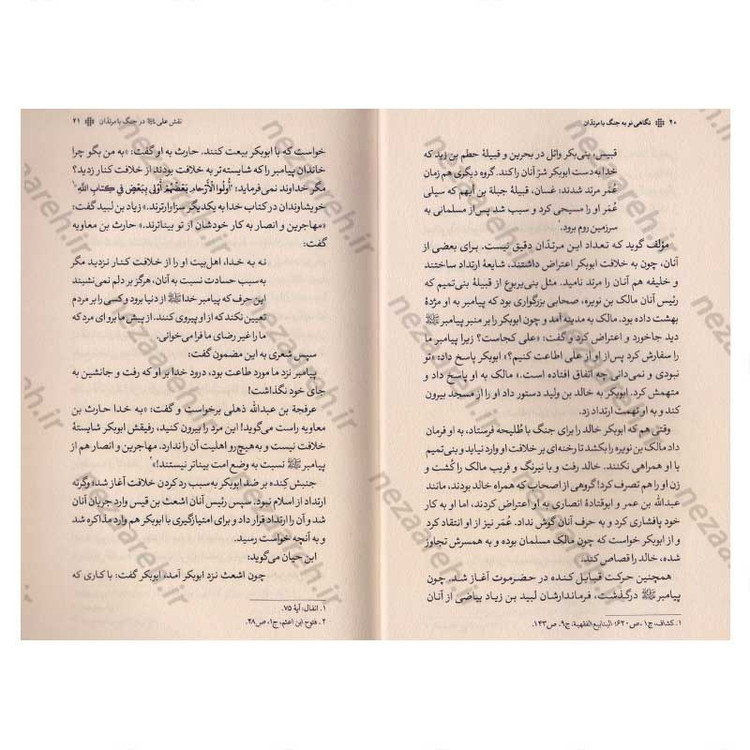 ۲۰ نگاهی نو به جنگ با مرتدّان
قبیس، بنی‌بکر وائل در بحرین و قبیلهٔ حطم بن زید که
خدا به دست ابوبکر شرّ آنان را کند. گروه دیگری هم زمان
عُمَر مرتد شدند: غسان، قبیلهٔ جبلة بن أیهم که سیلی
عُمَر او را مسیحی کرد و سبب شد پس از مسلمانی به
سرزمین روم برود.¹
مؤلف گوید که تعداد این مرتدّان دقیق نیست. برای بعضی از
آنان، چون به خلافت ابوبکر اعتراض داشتند، شایعهٔ ارتداد ساختند
و خلیفه هم آنان را مرتد نامید. مثل بنی‌یربوع از قبیلهٔ بنی‌تمیم که
رئیس آنان مالک بن نویره، صحابی بزرگواری بود که پیامبر به او مژدهٔ
بهشت داده بود. مالک به مدینه آمد و چون ابوبکر را بر منبر پیامبر ﷺ
دید جاخورد و اعتراض کرد و گفت: «علی کجاست؟ زیرا پیامبر ما
را سفارش کرد پس از او از علی اطاعت کنیم؟» ابوبکر پاسخ داد: «تو
نبودی و نمی‌دانی چه اتفاق افتاده است.» مالک به او پاسخ داد و
متهمش کرد. ابوبکر به خالد بن ولید دستور داد او را از مسجد بیرون
کند و به او تهمت ارتداد زد.
وقتی هم که ابوبکر خالد را برای جنگ با طُلیحه فرستاد، به او فرمان
داد مالک بن نویره را بکشد تا رخنه‌ای بر خلافت او وارد نیاید و بنی‌تمیم
با او همراهی نکنند. خالد رفت و با نیرنگ و فریب مالک را کُشت و
زن او را هم تصرف کرد! گروهی از اصحاب که همراه خالد بودند، مانند
عبدالله بن عمر و ابوقتادهٔ انصاری به او اعتراض کردند، اما او به کار
خود پافشاری کرد و به حرف آنان گوش نداد. عُمَر نیز از او انتقاد کرد
و از ابوبکر خواست که چون مالک مسلمان بوده و به همسرش تجاوز
شده، خالد را قصاص کند.
همچنین حرکت قبایل کنده در حضرموت آغاز شد. چون
پیامبر ﷺ درگذشت، فرماندارشان لبید بن زیاد بیاضی از آنان
۱. کشاف، ج۱، ص۶۲۰؛ الینابیع الفقهیة، ج۹، ص۱۴۳.
نقش علی در جنگ با مرتدّان ۲۱
خواست که با ابوبکر بیعت کنند. حارث به او گفت: «به من بگو چرا
خاندان پیامبر را که شایسته‌تر به خلافت بودند از خلافت کنار زدید؟
مگر خداوند نمی‌فرماید: "أُولُوا الْأَرْحَامِ بَعْضُهُمْ أَوْلَى بِبَعْضٍ فِي كِتَابِ اللَّهِ"¹
خویشاوندان در کتاب خدا به یکدیگر سزاوارترند.» زیاد بن لبید گفت:
«مهاجرین و انصار به کار خودشان از تو بیناترند.» حارث بن معاویه
گفت:
نه به خدا، اهل‌بیت او را از خلافت کنار نزدید مگر
به سبب حسادت نسبت به آنان، هرگز بر دلم نمی‌نشیند
این حرف که پیامبر خدا ﷺ از دنیا برود و کسی را بر مردم
تعیین نکند که از او پیروی کنند. از پیش ما برو ای مرد که
ما را غیر رضای ما فرا می‌خوانی.
سپس شعری به این مضمون گفت:
پیامبر نزد ما مورد طاعت بود، درود خدا بر او که رفت و جانشین به
جای خود نگذاشت!
عرفجة بن عبدالله ذهلی برخواست و گفت: «به خدا حارث بن
معاویه راست می‌گوید! این مرد را بیرون کنید، رفیقش ابوبکر شایستهٔ
خلافت نیست و به‌هیچ‌رو اهلیت آن را ندارد. مهاجرین و انصار هم از
پیامبر ﷺ نسبت به وضع امت بیناتر نیستند!»²
جنبش کِنده بر ضد ابوبکر به سبب رد کردن خلافت آغاز شد؛ وگرنه
ارتداد از اسلام نبود. سپس رئیس آنان اشعث بن قیس وارد جریان آنان
شد و آن را ارتداد قرار داد و برای امتیازگیری با ابوبکر هم وارد مذاکره شد
و به آنچه خواست رسید.
ابن حیان می‌گوید:
چون اشعث نزد ابوبکر آمد، ابوبکر گفت: با کاری که
۱. انفال، آیهٔ ۷۵.
۲. فتوح ابن اعثم، ج۱، ص۴۸.
nezaareh.ir